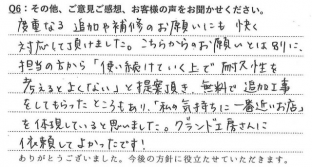 Q6：その他、ご意見ご感想、お客様の声をお聞かせください。
度重なる追加や補修のお願いにも快く
対応して頂けました。こちらからのお願いとは別に、
担当の方から「使い続けていく上で耐久性を
考えるとよくない」と提案頂き、無料で追加工事
をしてもらったところもあり、「私の気持ちに一番近いお店」
を体現していると思いました。グランド工房さんに
依頼してよかったです！
ありがとうございました。今後の方針に役立たせていただきます。